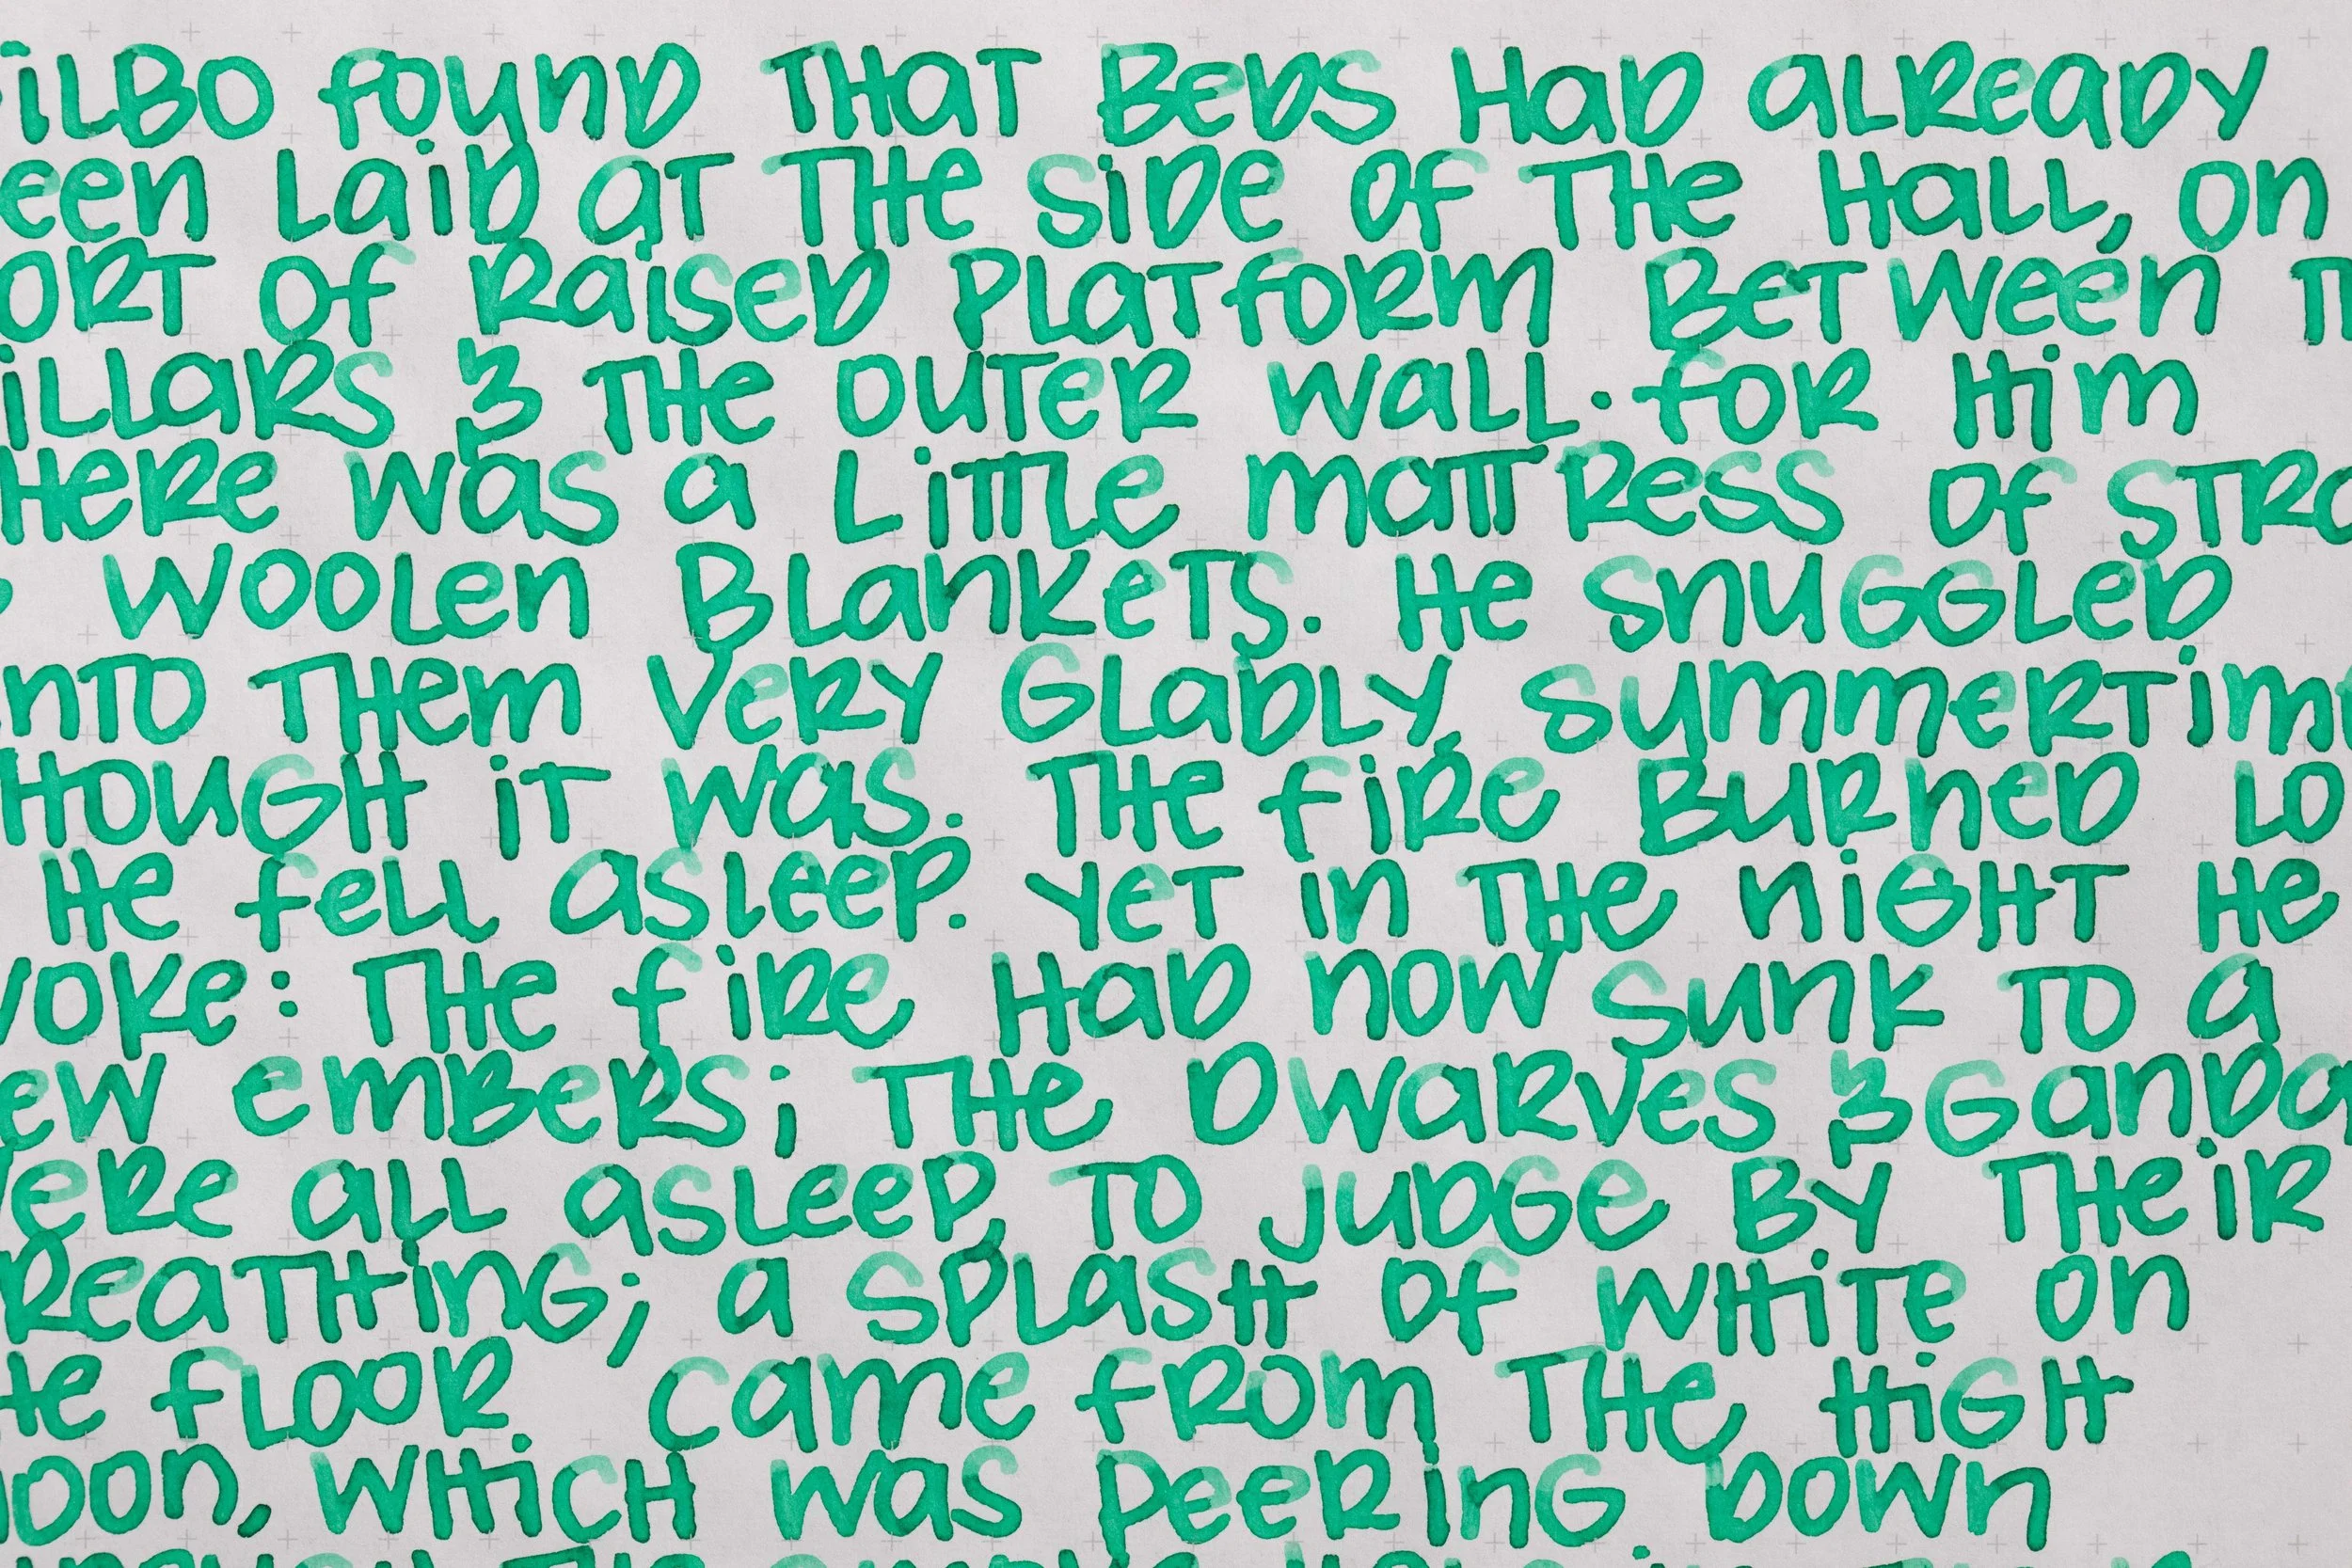 ilbo found that beds had already
een laid at the side of the hall, on
ort of raised platform between t
illars & the outer wall. for him
here was a little mattress of stra
woolen blankets. He snuggled
nto them very gladly, summertime
hough it was. The fire burned lo
He fell asleep. Yet in the night he
woke: the fire had now sunk to a
ew embers; the dwarves & Ganda
were all asleep, to judge by their
reathing; a splash of white on
he floor came from the high
moon, which was peering down